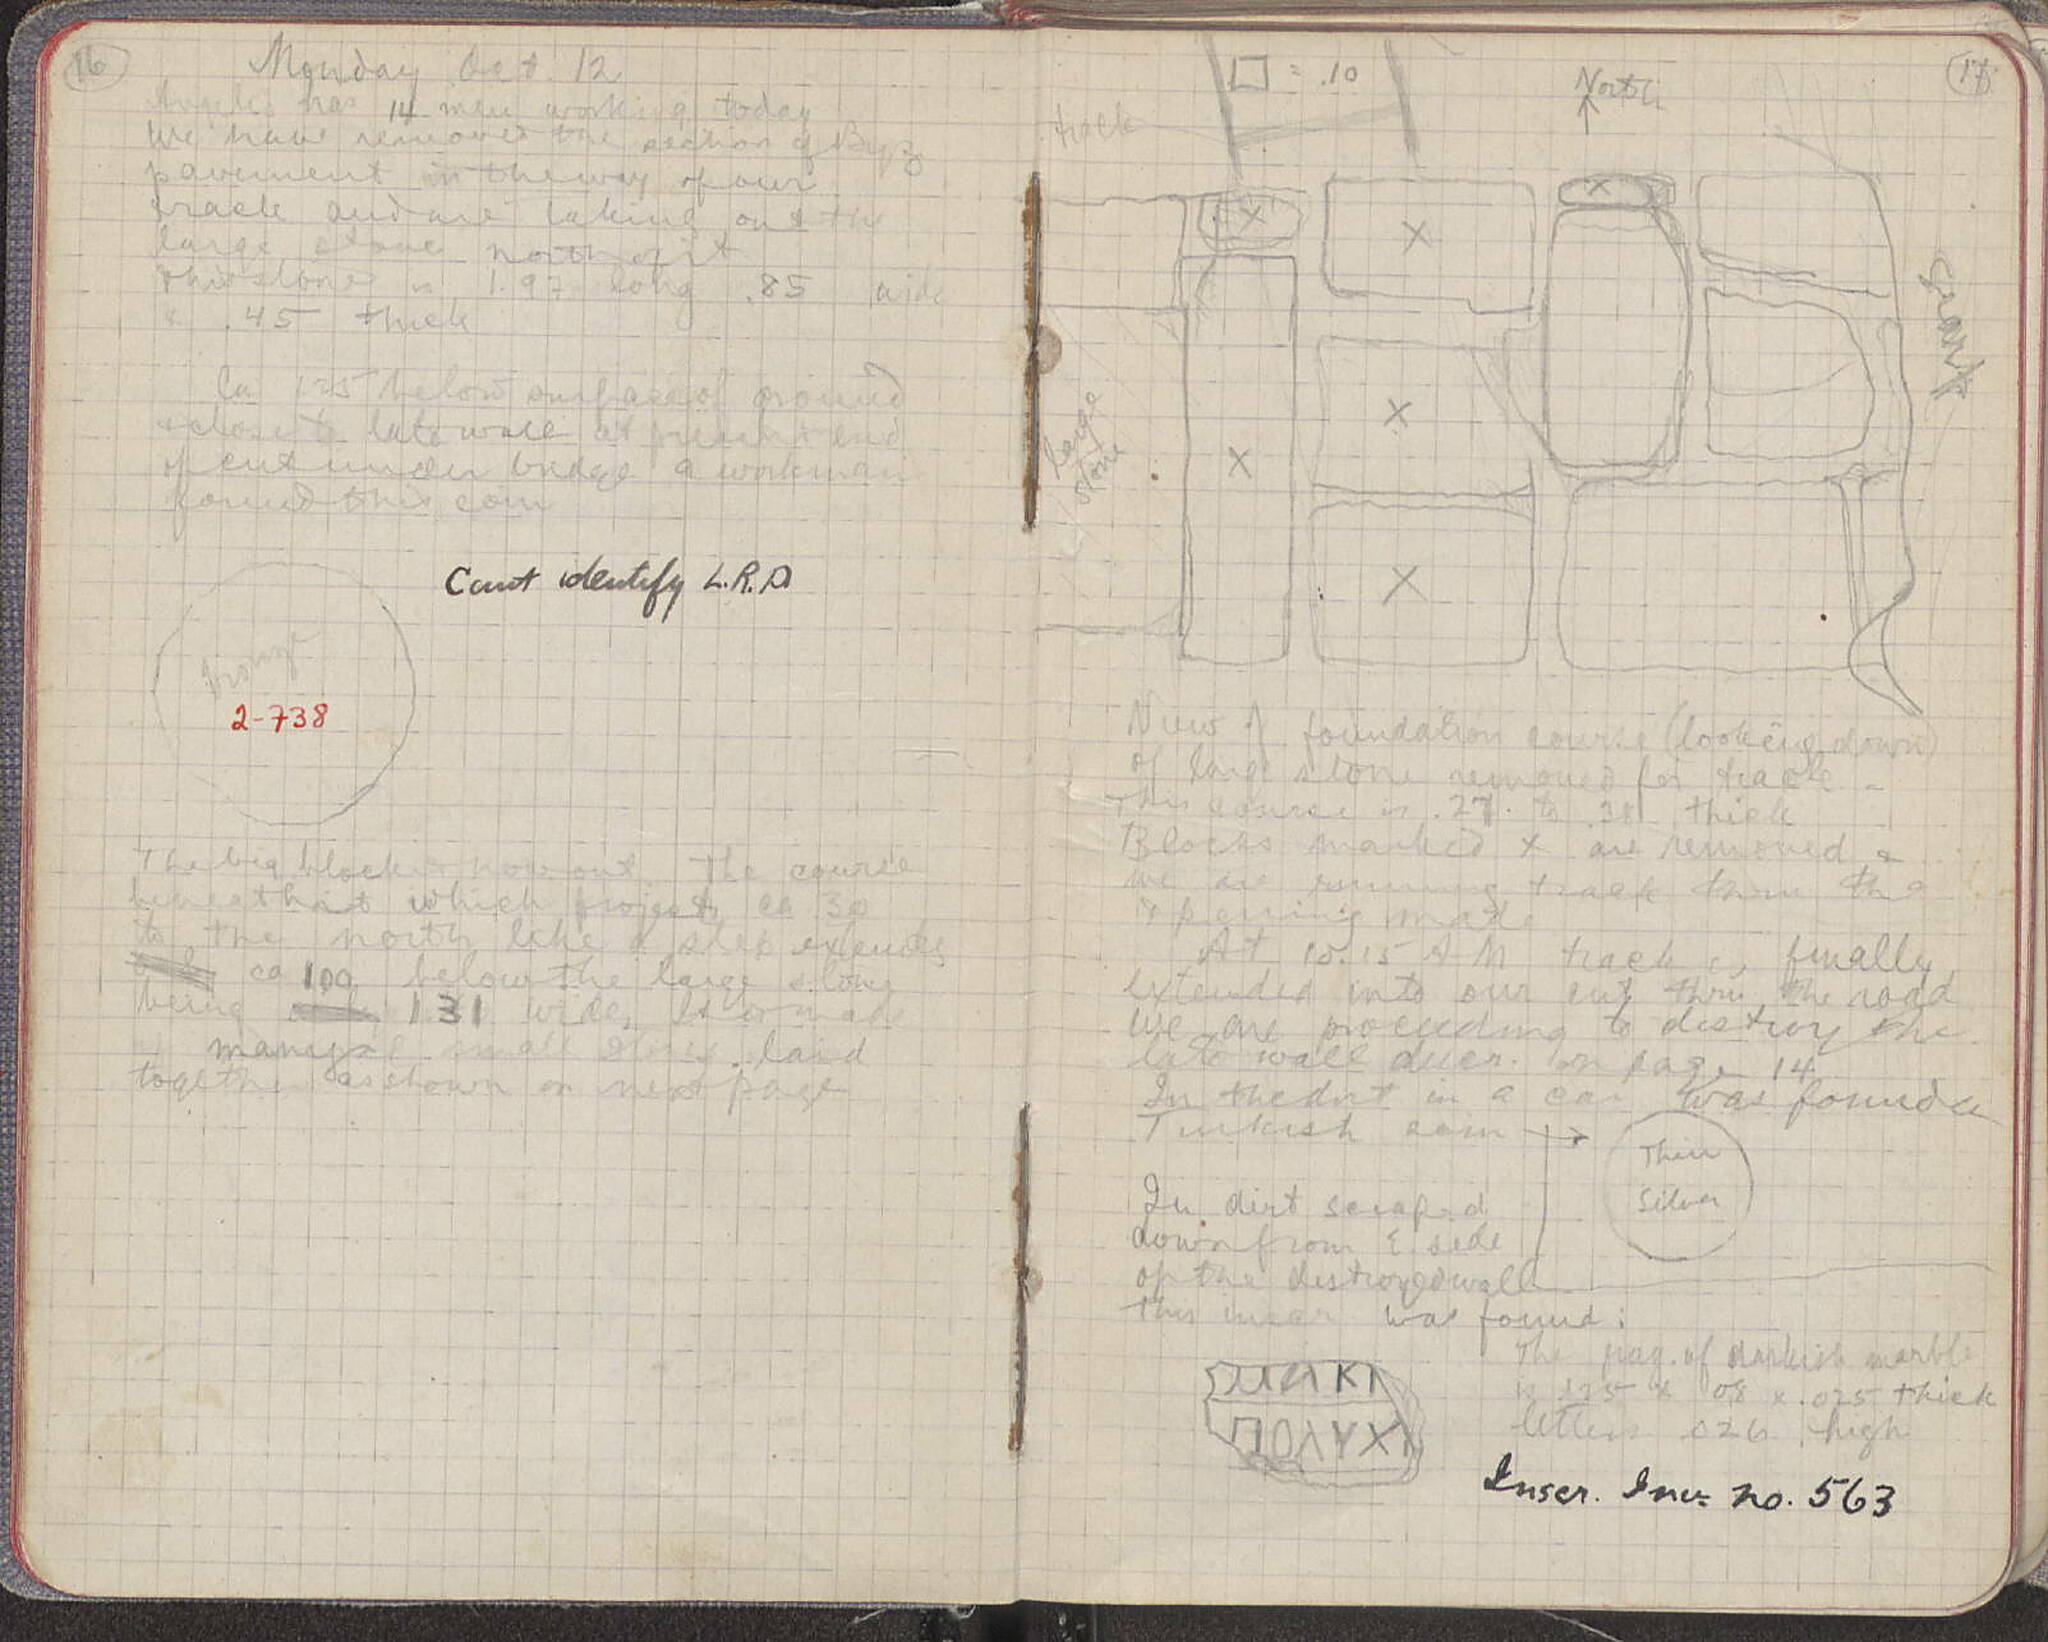 16
Monday Oct. 12
Angelis has 14 men working today
We have removed the section of Byz
pavement in the way of our
track and are taking out the
large stone north of it
This stone is 1.97 long .85 wide
x .45 thick
Ca 1.25 below surface of ground
& close to late wall at present end
of cut under bridge a workman
found this coin
Cant identify L.R.D
Bronze
2-738
The big block is now out. The course
beneath it which projects ca .30
to the north like a step extends
ca 1.00 below the large stone
being 1.31 wide, It is made
of many small stones laid
together as shown on next page
17
□ = .10
North
track
large
stone
Scarp
View of foundation course (looking down)
of large stone removed for track -
This course is .27 to .38 thick
Blocks marked x are removed &
we are running track thru the
opening made
At 10.15 A M track is finally
extended into our cut thru the road
We are proceeding to destroy the
late wall descr. on page 14
In the dirt in a car was found a
Turkish coin →
Thin
Silver
In dirt scraped
down from E. side
of the destroyed wall
this inscr was found:
ΚΙ
ΠΟΛΥΧ
The frag. of darkish marble
is .125 x .08 x .025 thick
letters .026 high
Inscr. Inv. no. 563